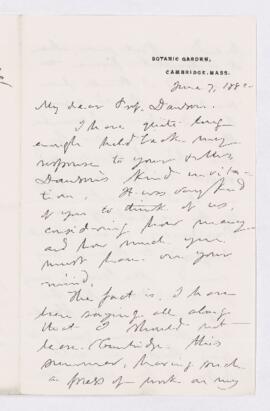 BOTANIC GARDEN,
CAMBRIDGE, MASS.
June 7, 188
My dear Prof. Dawson.
I have quite long
enough held back my
response to your
Dawson's kind invita-
tion. It was very kind
of you to think of us,
considering how many
and how much you
must have on your
mind.
The fact is, I have
been saying all along
that I should not
leave Cambridge this
summer, having such
a press of work on my